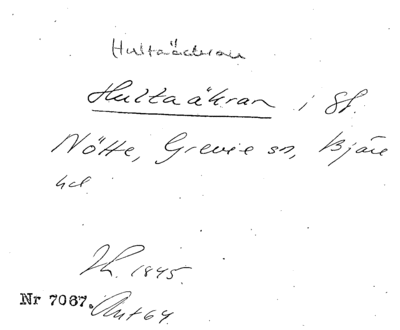 Hultaåkran
Hultaåkran i St.
Nötte, Grevie sn, Bjäre
hd
Sk. 1845.
Nr 7067. Ant 64